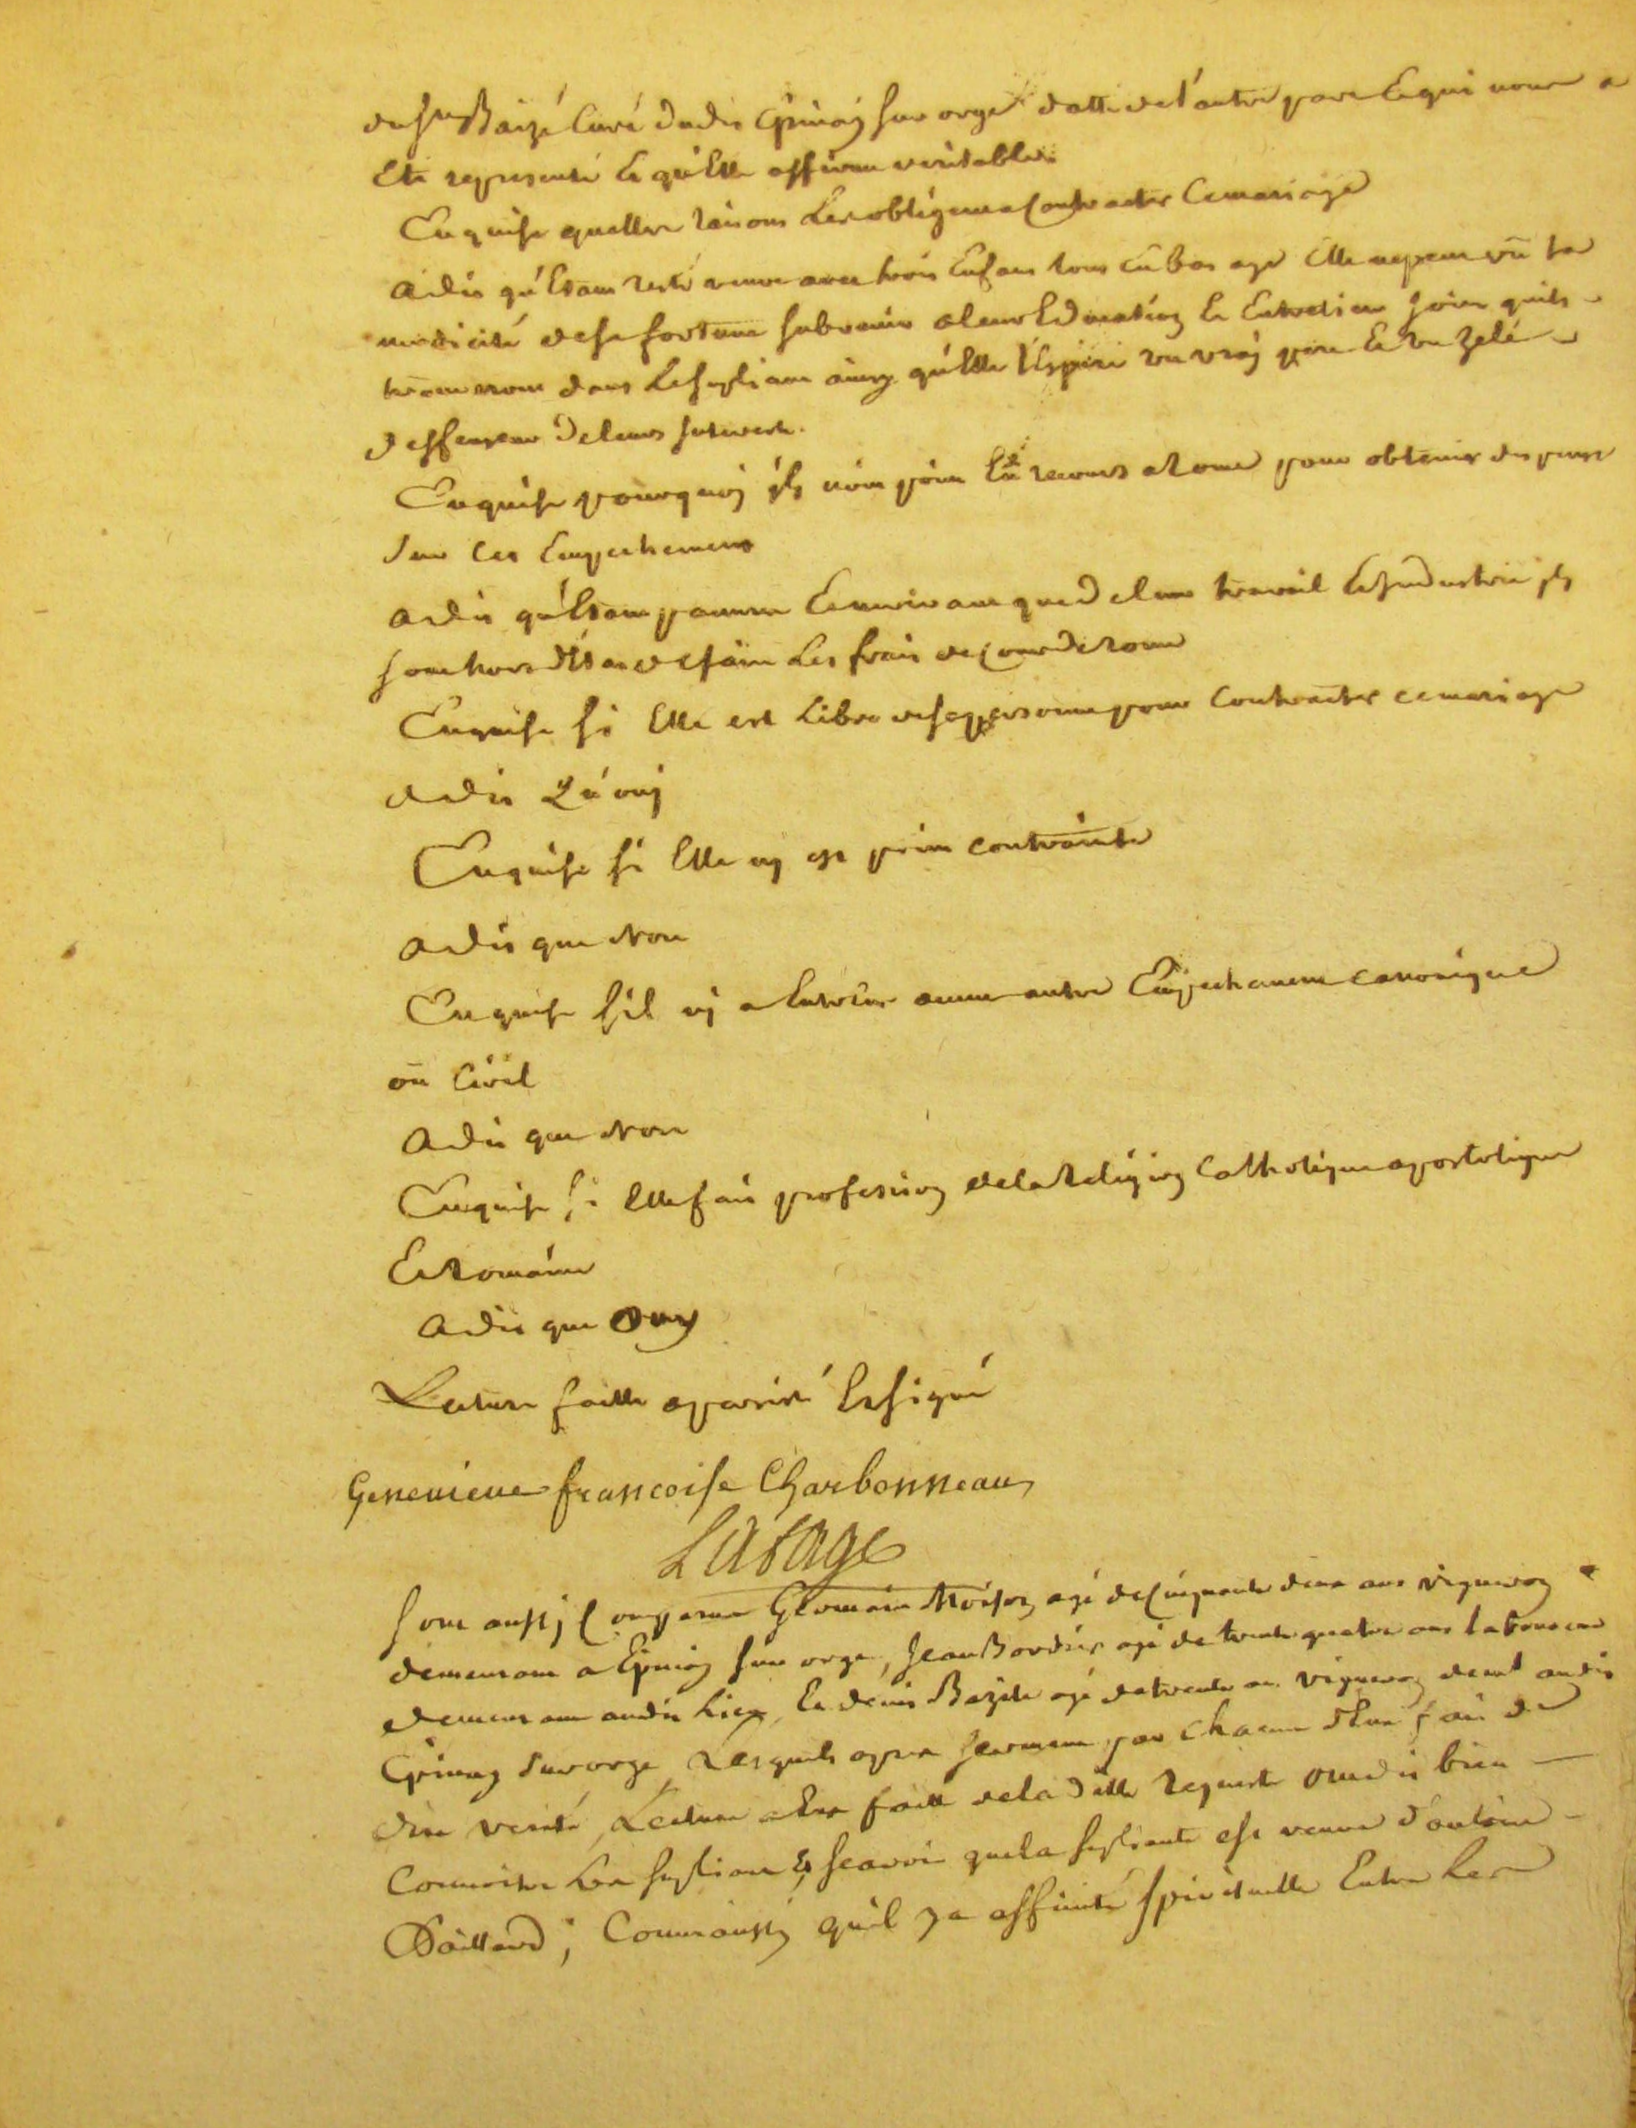 du Sr Baizé Curé dudit Epinay sur orge datté de l'autre part Et qui nous a
Eté representé Et qu'Elle affirme veritable.
Enquise quelles raisons Les obligent a Contracter Ce mariage
a dit qu'Etant resté veuve avec trois Enfans tous En bas age Elle ne peut vû la
modicité de sa fortune subvenir a leur Education Et Entretien joint quils
trouveront dans Le supliant ainsy qu'Elle l'Espere un vray pere Et un zelé
deffenseur de leurs Interests.
Enquise pourquoy ils n'ont point Eû recours a Rome pour obtenir dispense
sur Ces Empechemens
a dit qu'Etant pauvres Et ne vivant que de leur travail Et Industrie ils
sont hors d'Etat de faire Les frais de Cour de Rome
Enquise si Elle est Libre de sa personne pour Contracter ce mariage
a dit Qu'ouy
Enquise si Elle ny est point contrainte
a dit que Non
Enquise s'il ny a Entr'Eux aucun autre Empechement canonique
ou Civil
a dit que Non
Enquise si Elle fait profession de la Religion Catholique apostolique
Et Romaine
a dit que Ouy
Lecture faitte a persisté Et signé
Genevieve francoise Charbonneau
Lasage
Sont aussy Comparus Germain Moison agé de Cinquante deux ans vigneron
demeurant a Epinay sur orge, Jean Bordier agé de trente quatre ans laboureur
demeurant audit Lieu, Et denis Bazile agé de trente ans vigneron demt audit
Epinay sur orge Lesquels apres serment par Chacun d'Eux fait de
dire verité, Lecture a Eux faitte de la ditte Requeste ont dit bien
Connoitre Les supliants, scavoir que la supliante est veuve d'antoine
Daillard; Connoissent qu'il y a affinité spirituelle Entre Les